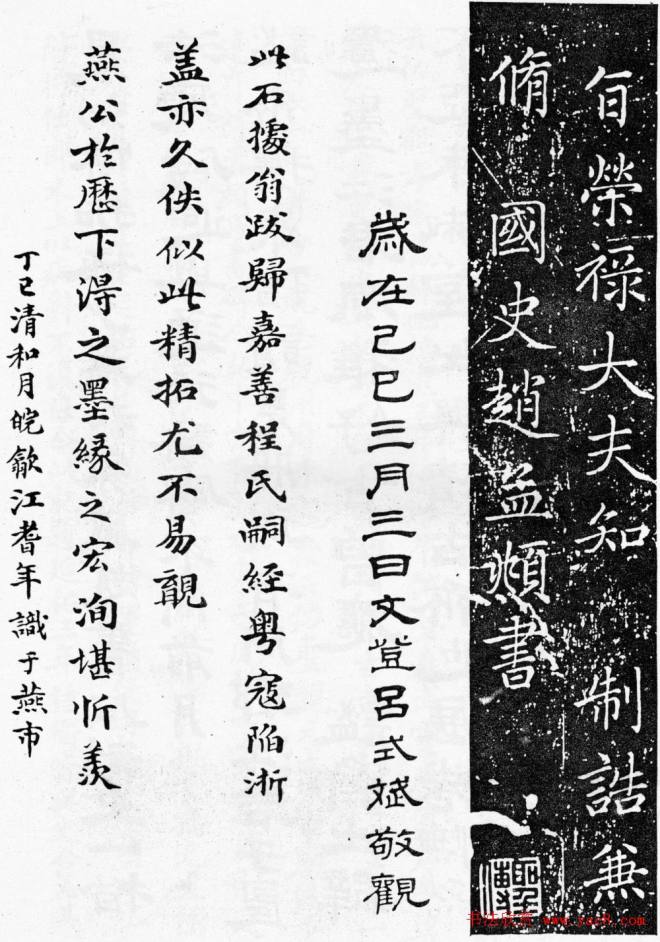 旨榮祿大夫知 制誥兼
脩 國史趙孟頫書
歲在己巳三月三日文登呂式斌敬觀
此石據翁跋歸嘉善程氏嗣經粵寇陷浙
盖亦久佚似此精拓尤不易覯
燕公於歷下淂之墨緣之宏洵堪忻羡
丁巳清和月皖歙江耆年識于燕市
书法欣赏 www.yac8.com